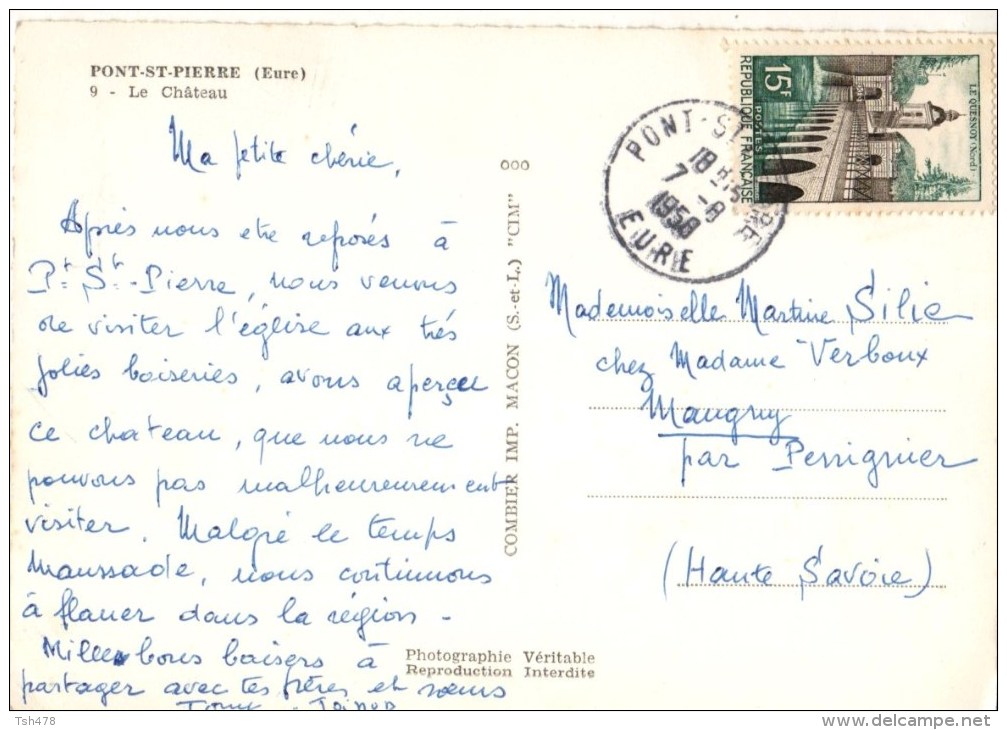 PONT-ST-PIERRE (Eure)
9 - Le Château
Ma petite chérie,
Après nous etre reposés à
Pt St-Pierre, nous venons
de visiter l'église aux très
jolies boiseries, avons aperçu
ce chateau, que nous ne
pouvons pas malheureusement
visiter. Malgré le temps
maussade, nous continuons
à flaner dans la région -
Milles bons baisers à
partager avec tes frères et sœurs
ooo
COMBIER IMP. MACON (S.-et-L.) "CIM"
Photographie Véritable
Reproduction Interdite
PONT-ST-PIERRE
18H15
7-8
1958
EURE
15F
POSTES
REPUBLIQUE FRANÇAISE
LE QUESNOY (Nord)
Mademoiselle Martine Silie
chez Madame Verboux
Maugny
par Perrignier
(Haute Savoie)
Tsh478
delcampe.net